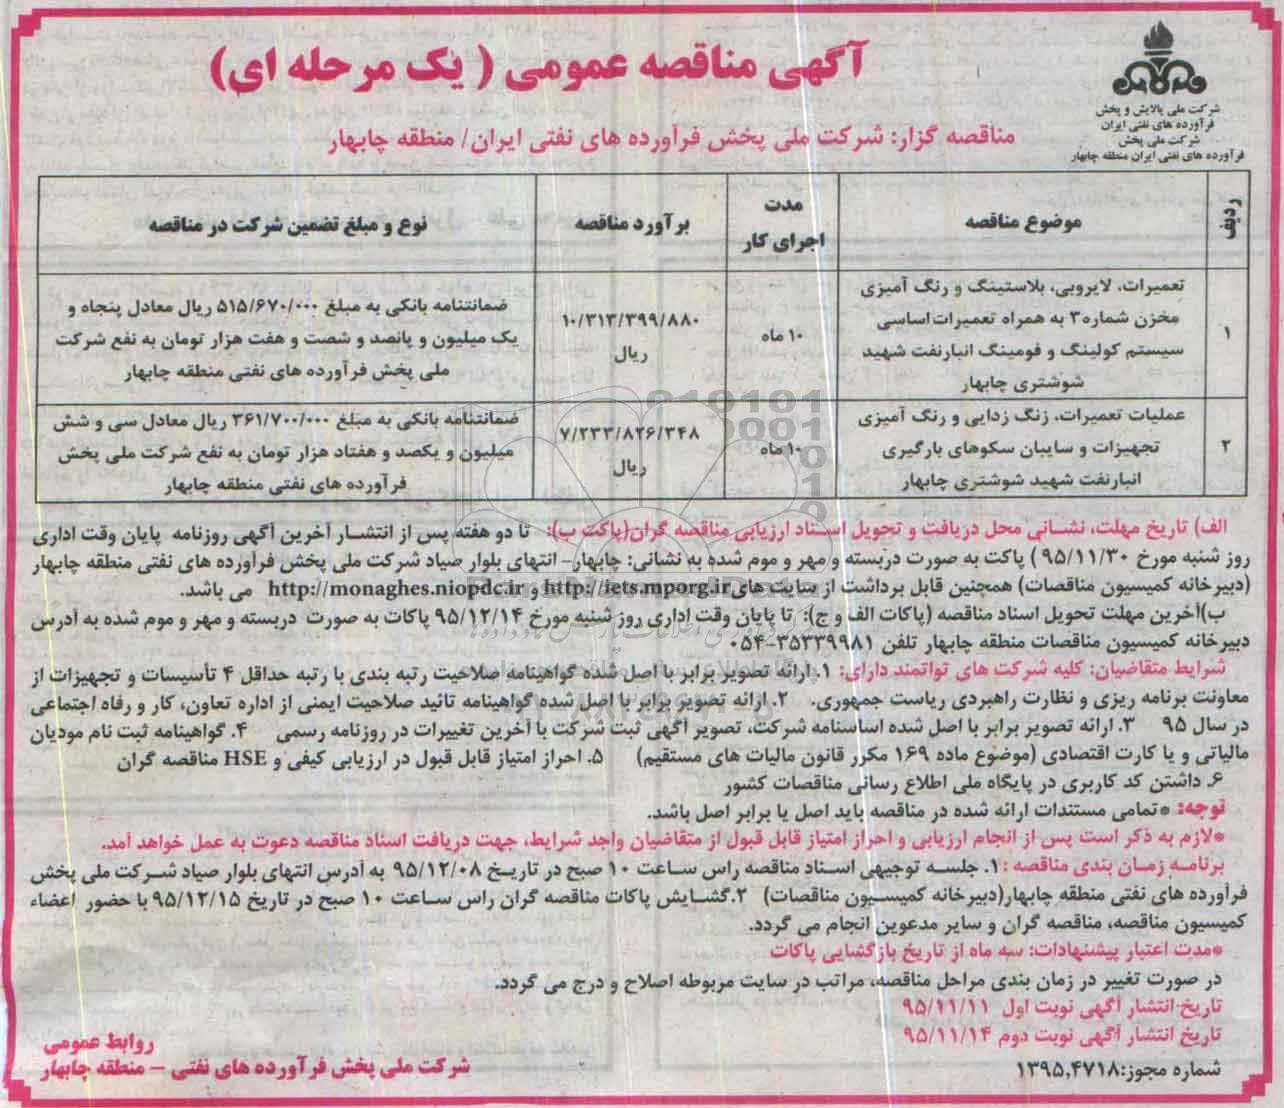 آگهی مناقصه عمومی ( یک مرحله ای)
شرکت ملی پالایش و پخش
فرآورده های نفتی ایران
شرکت ملی پخش
فرآورده های نفتی ایران منطقه چابهار
مناقصه گزار: شرکت ملی پخش فرآورده های نفتی ایران/ منطقه چابهار
ردیف
موضوع مناقصه
مدت
اجرای کار
برآورد مناقصه
نوع و مبلغ تضمین شرکت در مناقصه
۱
تعمیرات، لایروبی، بلاستینگ و رنگ آمیزی
مخزن شماره۳ به همراه تعمیرات اساسی
سیستم کولینگ و فومینگ انبارنفت شهید
شوشتری چابهار
۱۰ ماه
۱۰/۳۱۳/۳۹۹/۸۸۰
ریال
ضمانتنامه بانکی به مبلغ ۵۱۵/۶۷۰/۰۰۰ ریال معادل پنجاه و
یک میلیون و پانصد و شصت و هفت هزار تومان به نفع شرکت
ملی پخش فرآورده های نفتی منطقه چابهار
۲
عملیات تعمیرات، زنگ زدایی و رنگ آمیزی
تجهیزات و سایبان سکوهای بارگیری
انبارنفت شهید شوشتری چابهار
۱۰ ماه
۷/۲۳۳/۸۲۶/۳۴۸
ریال
ضمانتنامه بانکی به مبلغ ۳۶۱/۷۰۰/۰۰۰ ریال معادل سی و شش
میلیون و یکصد و هفتاد هزار تومان به نفع شرکت ملی پخش
فرآورده های نفتی منطقه چابهار
الف) تاریخ مهلت، نشانی محل دریافت و تحویل اسناد ارزیابی مناقصه گران(پاکت ب): تا دو هفته پس از انتشار آخرین آگهی روزنامه پایان وقت اداری
روز شنبه مورخ ۹۵/۱۱/۳۰ ) پاکت به صورت دربسته و مهر و موم شده به نشانی: چابهار- انتهای بلوار صیاد شرکت ملی پخش فرآورده های نفتی منطقه چابهار
(دبیرخانه کمیسیون مناقصات) همچنین قابل برداشت از سایت های http://iets.mporg.ir و http://monaghes.niopdc.ir می باشد.
ب)آخرین مهلت تحویل اسناد مناقصه (پاکات الف و ج): تا پایان وقت اداری روز شنبه مورخ ۹۵/۱۲/۱۴ پاکات به صورت دربسته و مهر و موم شده به آدرس
دبیرخانه کمیسیون مناقصات منطقه چابهار تلفن ۳۵۳۳۹۹۸۱-۰۵۴
شرایط متقاضیان: کلیه شرکت های توانمند دارای: ۱. ارائه تصویر برابر با اصل شده گواهینامه صلاحیت رتبه بندی با رتبه حداقل ۴ تأسیسات و تجهیزات از
معاونت برنامه ریزی و نظارت راهبردی ریاست جمهوری. ۲. ارائه تصویر برابر با اصل شده گواهینامه تائید صلاحیت ایمنی از اداره تعاون، کار و رفاه اجتماعی
در سال ۹۵ ۳. ارائه تصویر برابر با اصل شده اساسنامه شرکت، تصویر آگهی ثبت شرکت با آخرین تغییرات در روزنامه رسمی ۴. گواهینامه ثبت نام مودیان
مالیاتی و یا کارت اقتصادی (موضوع ماده ۱۶۹ مکرر قانون مالیات های مستقیم) ۵. احراز امتیاز قابل قبول در ارزیابی کیفی و HSE مناقصه گران
۶. داشتن کد کاربری در پایگاه ملی اطلاع رسانی مناقصات کشور
توجه: *تمامی مستندات ارائه شده در مناقصه باید اصل یا برابر اصل باشد.
*لازم به ذکر است پس از انجام ارزیابی و احراز امتیاز قابل قبول از متقاضیان واجد شرایط، جهت دریافت اسناد مناقصه دعوت به عمل خواهد آمد.
برنامه زمان بندی مناقصه : ۱. جلسه توجیهی اسناد مناقصه راس ساعت ۱۰ صبح در تاریخ ۹۵/۱۲/۰۸ به آدرس انتهای بلوار صیاد شرکت ملی پخش
فرآورده های نفتی منطقه چابهار(دبیرخانه کمیسیون مناقصات) ۲.گشایش پاکات مناقصه گران راس ساعت ۱۰ صبح در تاریخ ۹۵/۱۲/۱۵ با حضور اعضاء
کمیسیون مناقصه، مناقصه گران و سایر مدعوین انجام می گردد.
*مدت اعتبار پیشنهادات: سه ماه از تاریخ بازگشایی پاکات
در صورت تغییر در زمان بندی مراحل مناقصه، مراتب در سایت مربوطه اصلاح و درج می گردد.
تاریخ انتشار آگهی نوبت اول ۹۵/۱۱/۱۱
تاریخ انتشار آگهی نوبت دوم ۹۵/۱۱/۱۴
شماره مجوز:۱۳۹۵,۴۷۱۸
روابط عمومی
شرکت ملی پخش فرآورده های نفتی - منطقه چابهار